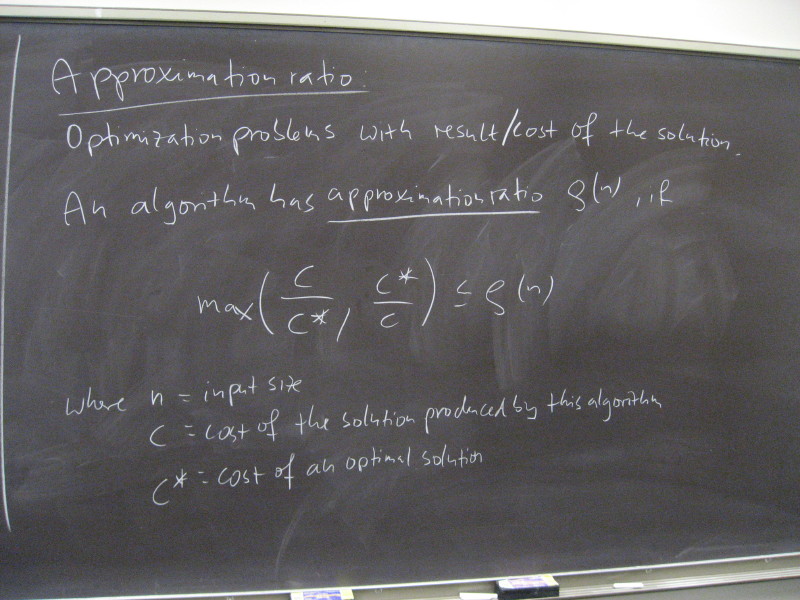 Approximation ratio:
Optimization problems with result/cost of the solution.
An algorithm has approximation ratio ρ(n), if
max(C/C*, C*/C) ≤ ρ(n)
where n = input size
C = cost of the solution produced by this algorithm
C* = cost of an optimal solution